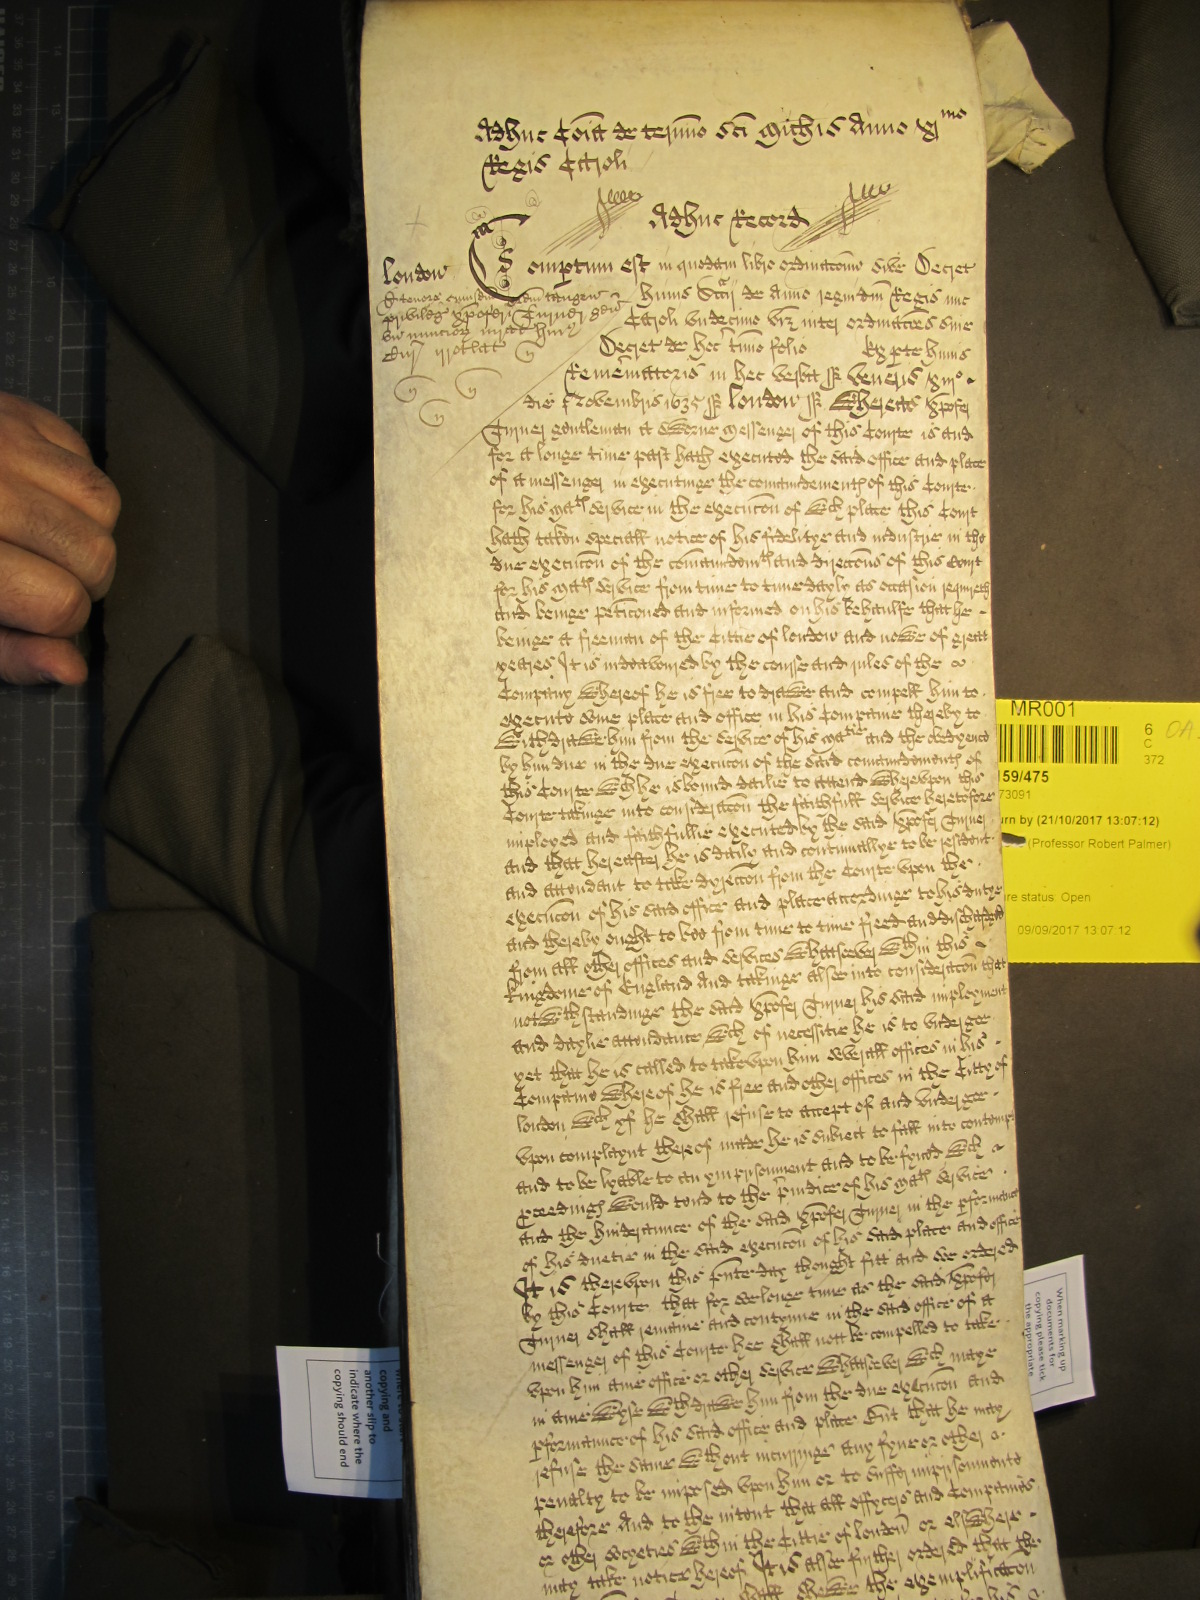 Adhuc Coia de termino Sci Michis Anno xj mo
Regis Caroli
Adhuc Record
London
Compertum est in quodam libro ordinacionu sive Decret
huius Sccij de Anno regni dni Regis nuc
Caroli undecimo vizt inter ordinacoes sive
Decret de hoc timo folio Ex parte huius
Rememoratoris in hec verba ss Veneris xiijo
die Novembris 1635 ss London ss Whereas Xpofer
Turner gentleman a sworne messenger of this Courte is and
for a longe time past hath executed the said office and place
of a messenger in executinge the comaundements of this Courte
for his Mats service in the execucon of wch place this Court
hath taken speciall notice of his fidelitye and industrie in the
due execucon of the comaundemts and direccons of this Court
for his Mats service from time to time dayly as occasion requireth
and beinge peticoned and informed on his behaulfe that he
beinge a freeman of the Cittie of London and nowe of great
yeares It is indeavoured by the course and rules of the
Company whereof he is free to drawe and compell him to
execute some place and office in his Companie thereby to
withdrawe him from the service of his Matie and the obedyence
by him due in the due execucon of the said comaundements of
this Courte wch he is bound dailie to attend Whereupon this
Courte takinge into consideracon the faithfull service heretofore
imployed and faithfullie executed by the said Xpofer Turner
and that hereafter he is daily and continuallye to be resident
and attendant to take dyreccon from the Courte upon the
execucon of his said office and place accordinge to his dutye
and thereby ought to bee from time to time freed and discharged
from all other offices and services whatsoever wthin this
kingdome of England And takinge alsoe into consideracon that
notwthstandinge the said Xpofer Turner his said imployment
and daylie attendance wch of necessitie he is to undergoe
yet that he is called to take upon him severall offices in his
Companie whereof he is free and other offices in the Citty of
London wch yf he shall refuse to accept of and undergoe
upon complaynt thereof made he is subiect to fall into contempt
and to be lyable to an ymprisonment and to be fyned wch
proceedings would tend to the preiudice of his Mats service
and the hinderance of the said Xpofer Turner in the pformance
of his duetie in the said execucon of his said place and office
It is thereupon this pnte day thought fitt and soe ordered
by this Courte that for soe longe time as the said Xpofer
Turner shall remaine and contynue in the said office of a
messenger of this Courte hee shall nott be compelled to take
upon him anie office or other service whatsoever wch maye
in anie wyse wthdrawe him from the due execucon and
pformance of his said office and place But that he may
refuse the same wthout incurringe any fyne or other
penalty to be imposed upon him or to suffer imprisonmente
therefore And to the intent that all offycers and Companies
or other societies wthin the Cittie of London or elswhere
may take notice hereof It is alsoe further ordered that the
shall shewe the exemplificacon
MR001
6
C
372
159/475
73091
urn by (21/10/2017 13:07:12)
(Professor Robert Palmer)
re status Open
09/09/2017 13:07:12
When marking up
documents for
copying please tick
the appropriate
copying and
another slip to
indicate where the
copying should end